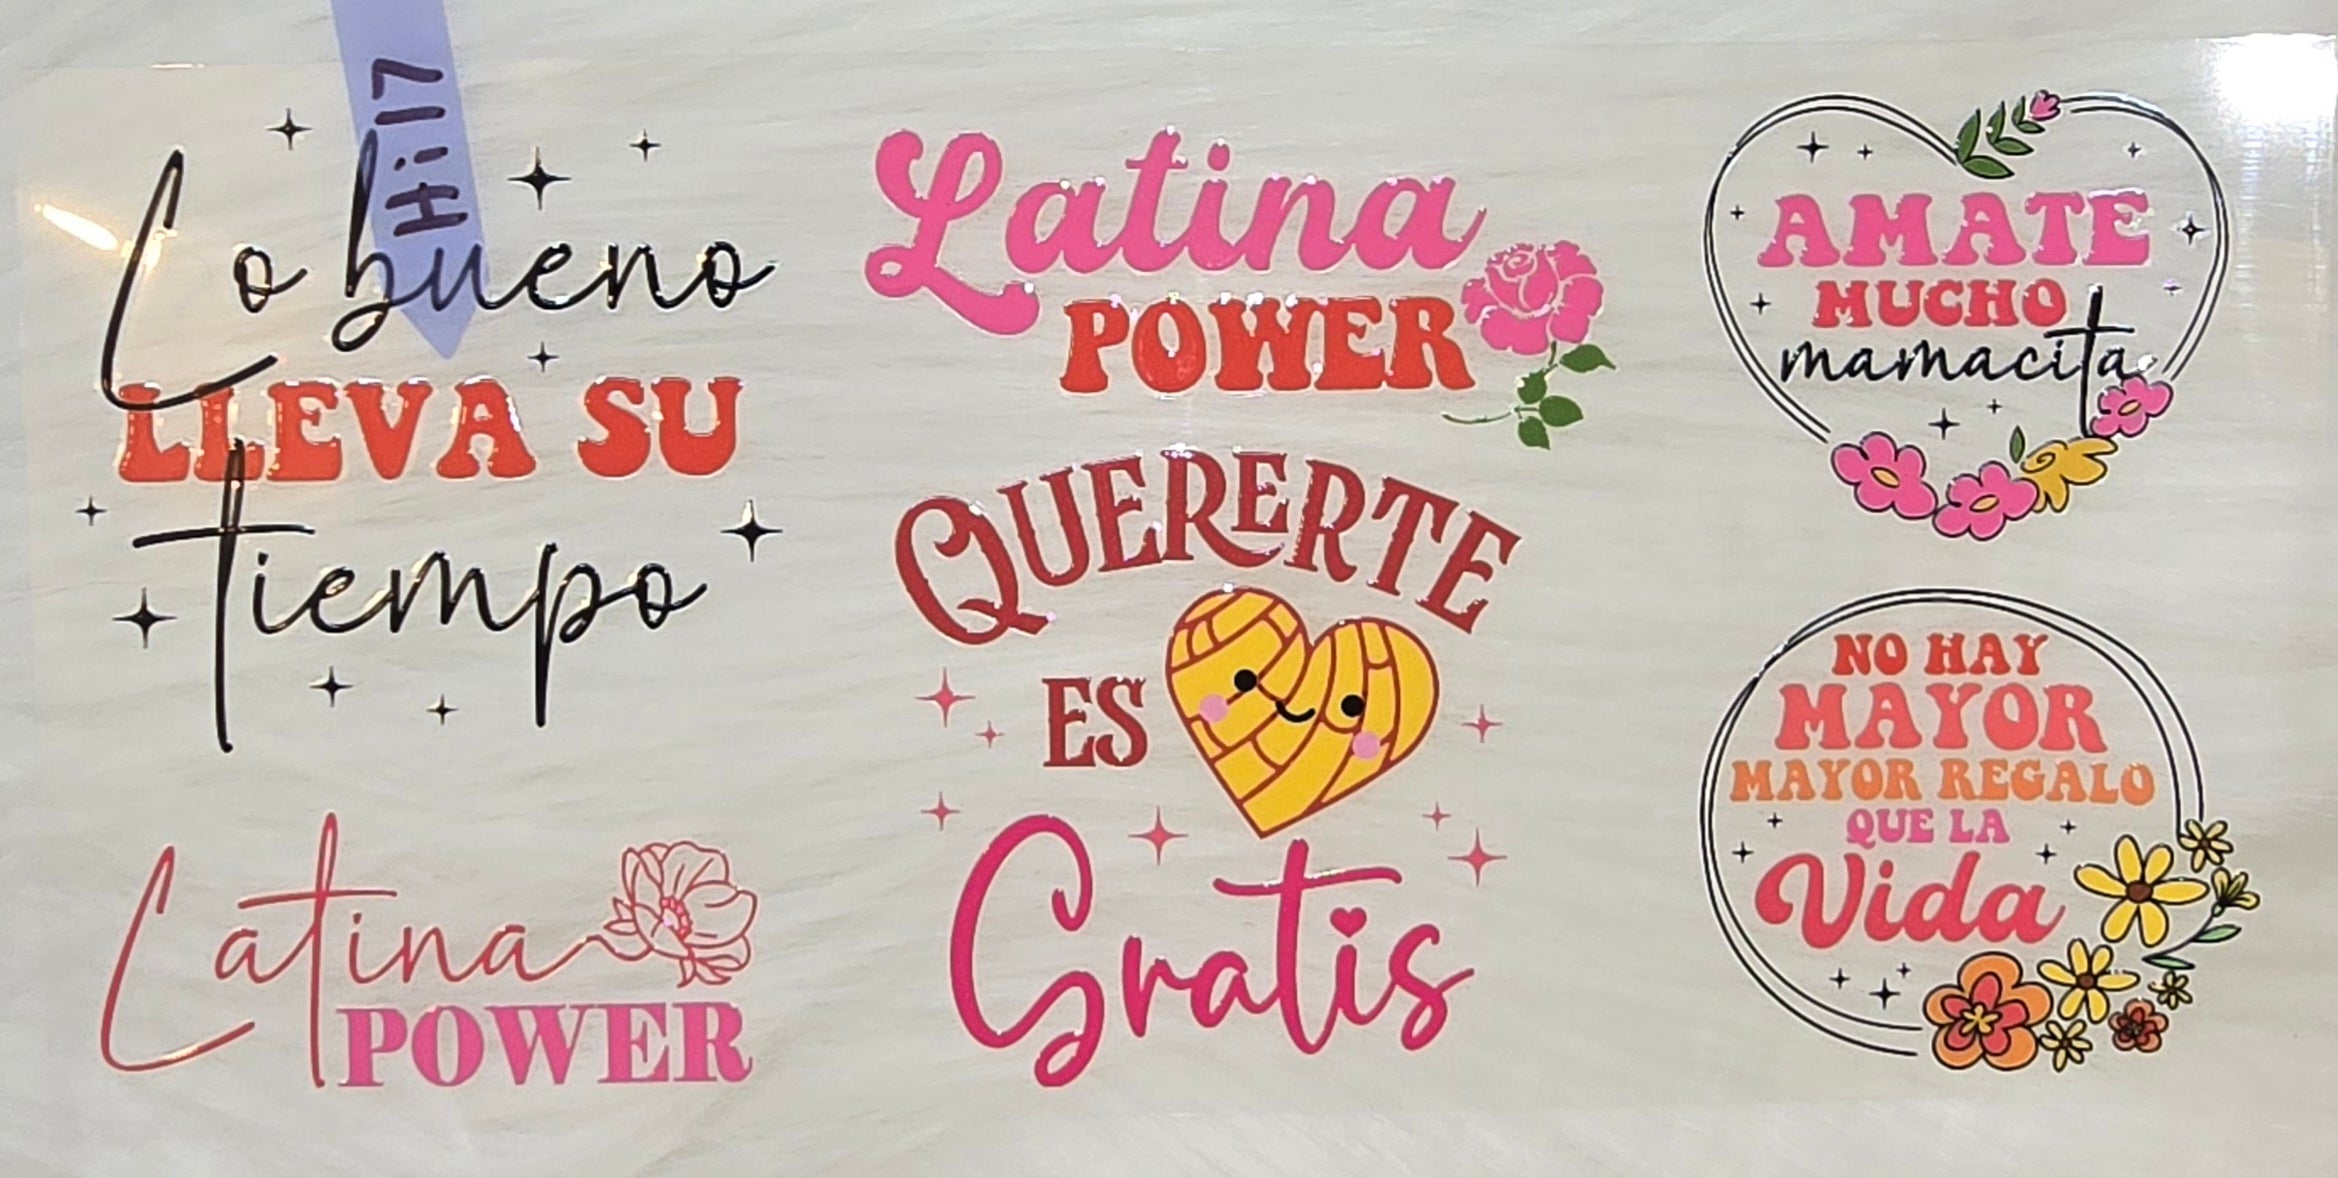 Hi17
Lo bueno
LLEVA SU
Tiempo
Latina
POWER
Latina
POWER
QUERERTE
ES
Gratis
AMATE
MUCHO
mamacita
NO HAY
MAYOR
MAYOR REGALO
QUE LA
Vida